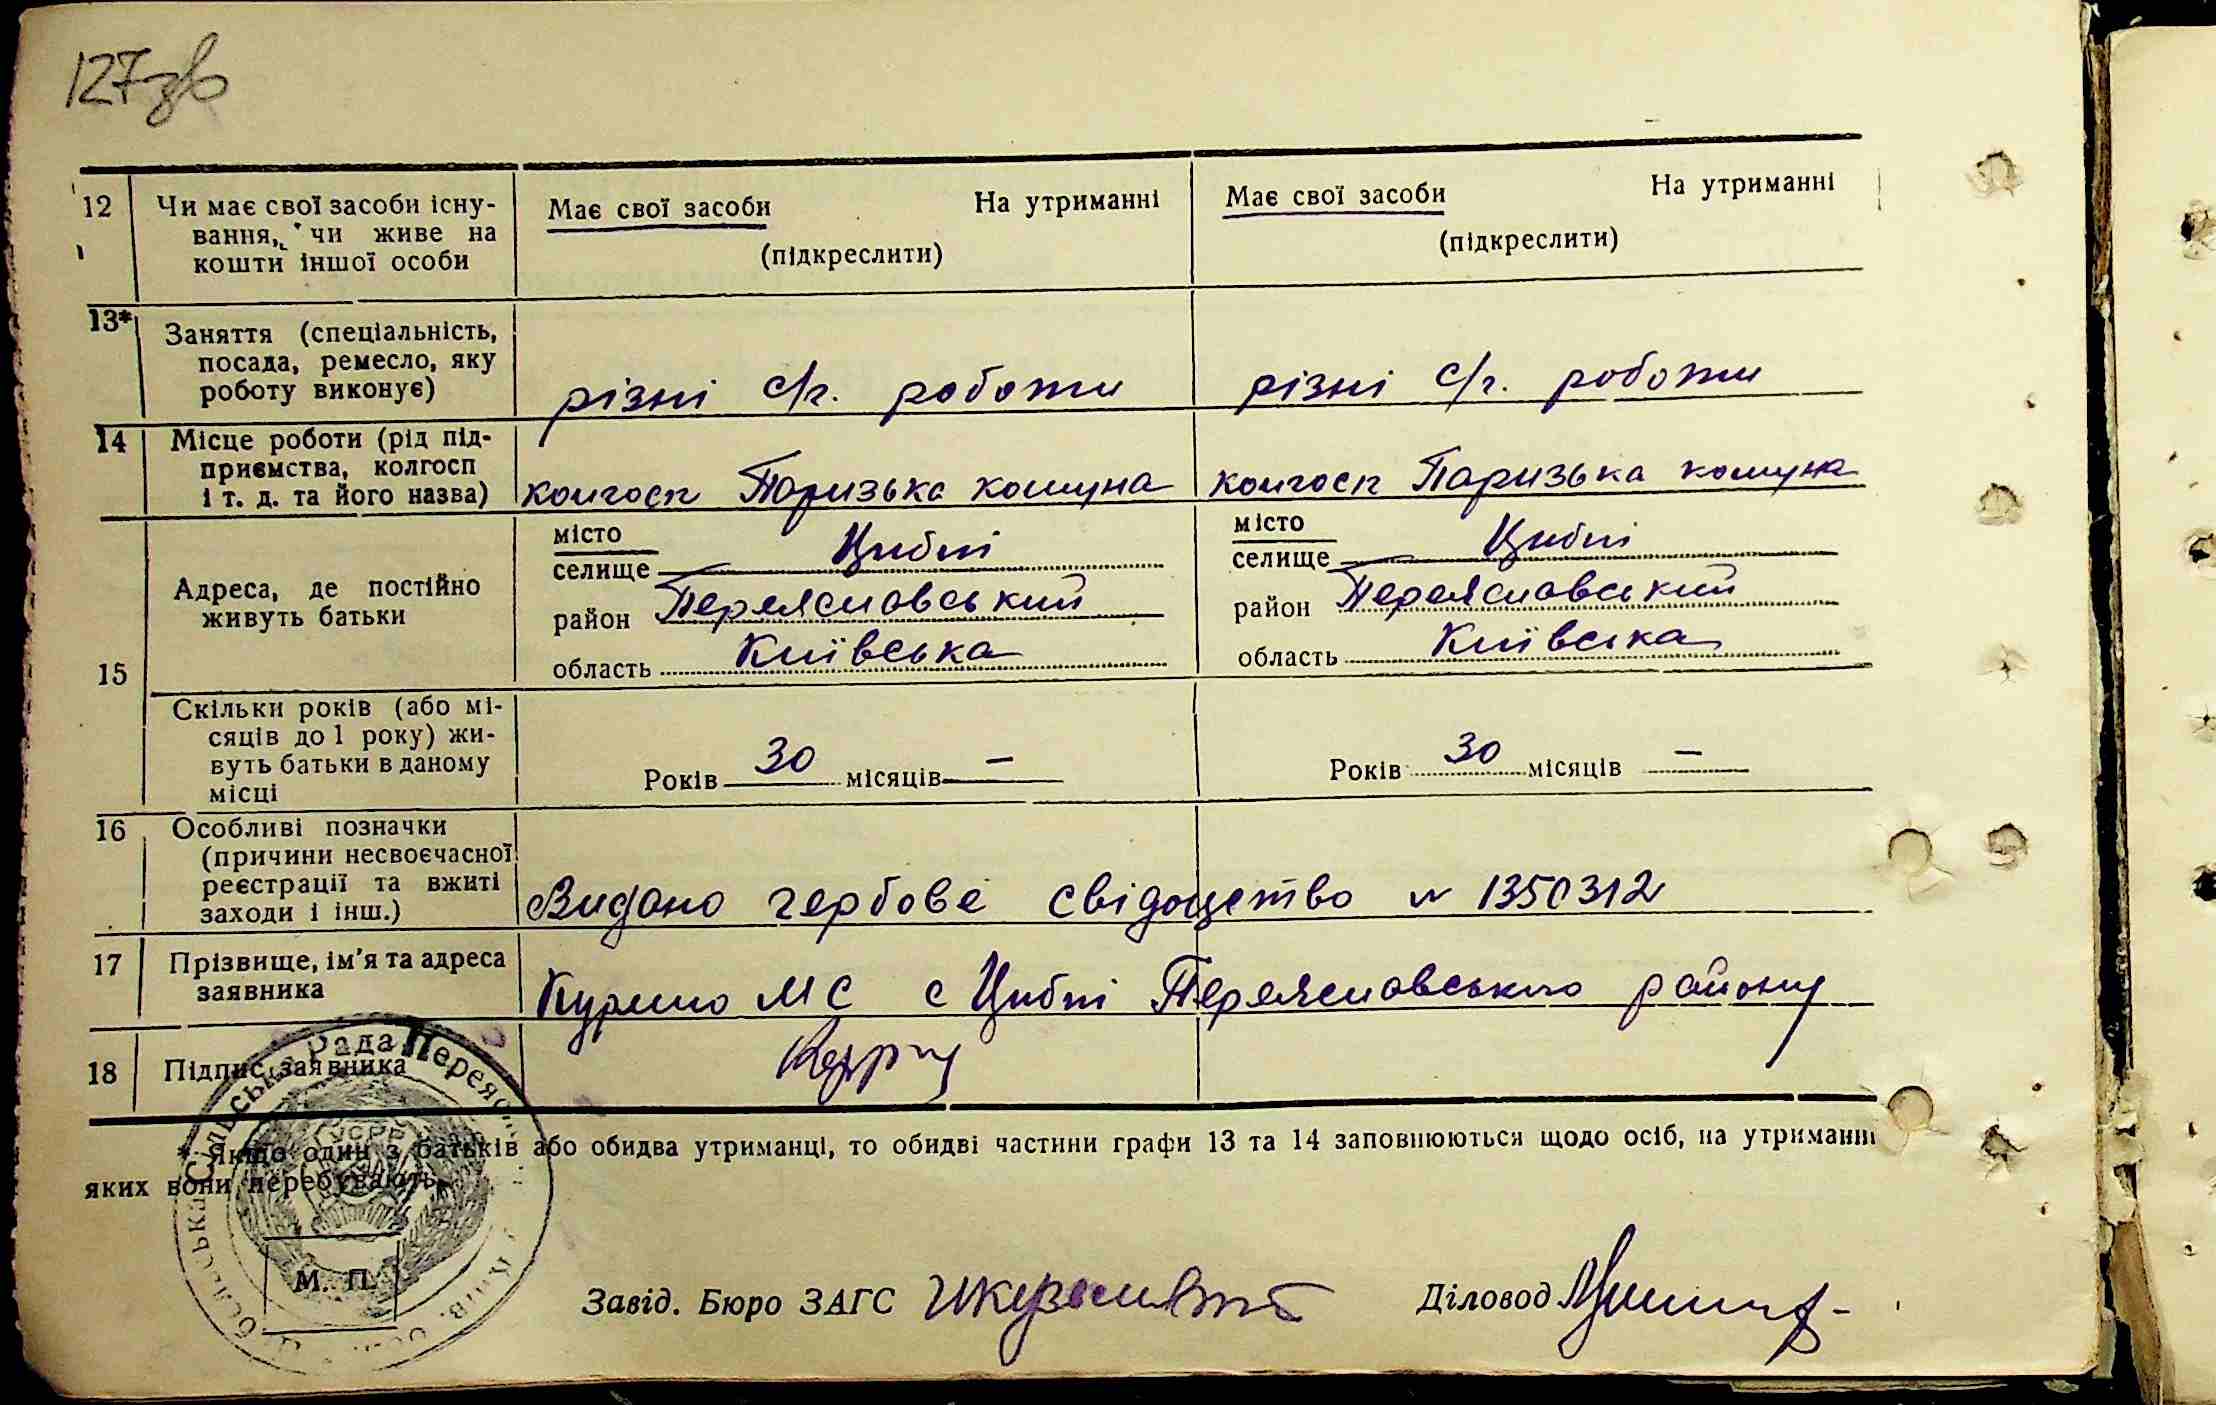 127зв
12 Чи має свої засоби існу- Має свої засоби На утриманні Має свої засоби На утриманні
вання, чи живе на (підкреслити) (підкреслити)
кошти іншої особи
13* Заняття (спеціальність,
посада, ремесло, яку
роботу виконує) різні с/г. роботи різні с/г. роботи
14 Місце роботи (рід під-
приємства, колгосп
і т. д. та його назва) колгосп Паризька комуна колгосп Паризька комуна
15 Адреса, де постійно
живуть батьки
місто місто
селище Циблі селище Циблі
район Переяславський район Переяславський
область Київська область Київська
Скільки років (або мі-
сяців до 1 року) жи-
вуть батьки в даному
місці
Років 30 місяців — Років 30 місяців —
16 Особливі позначки
(причини несвоєчасної
реєстрації та вжиті
заходи і інш.) Видано гербове свідоцтво № 1350312
17 Прізвище, ім'я та адреса
заявника МС с Циблі Переяславського району
18 Підпис заявника
* Якщо один з батьків або обидва утриманці, то обидві частини графи 13 та 14 заповнюються щодо осіб, на утриманні
яких вони перебувають.
Сільська Рада Переяс
УСРР
М. П.
Завід. Бюро ЗАГС Діловод